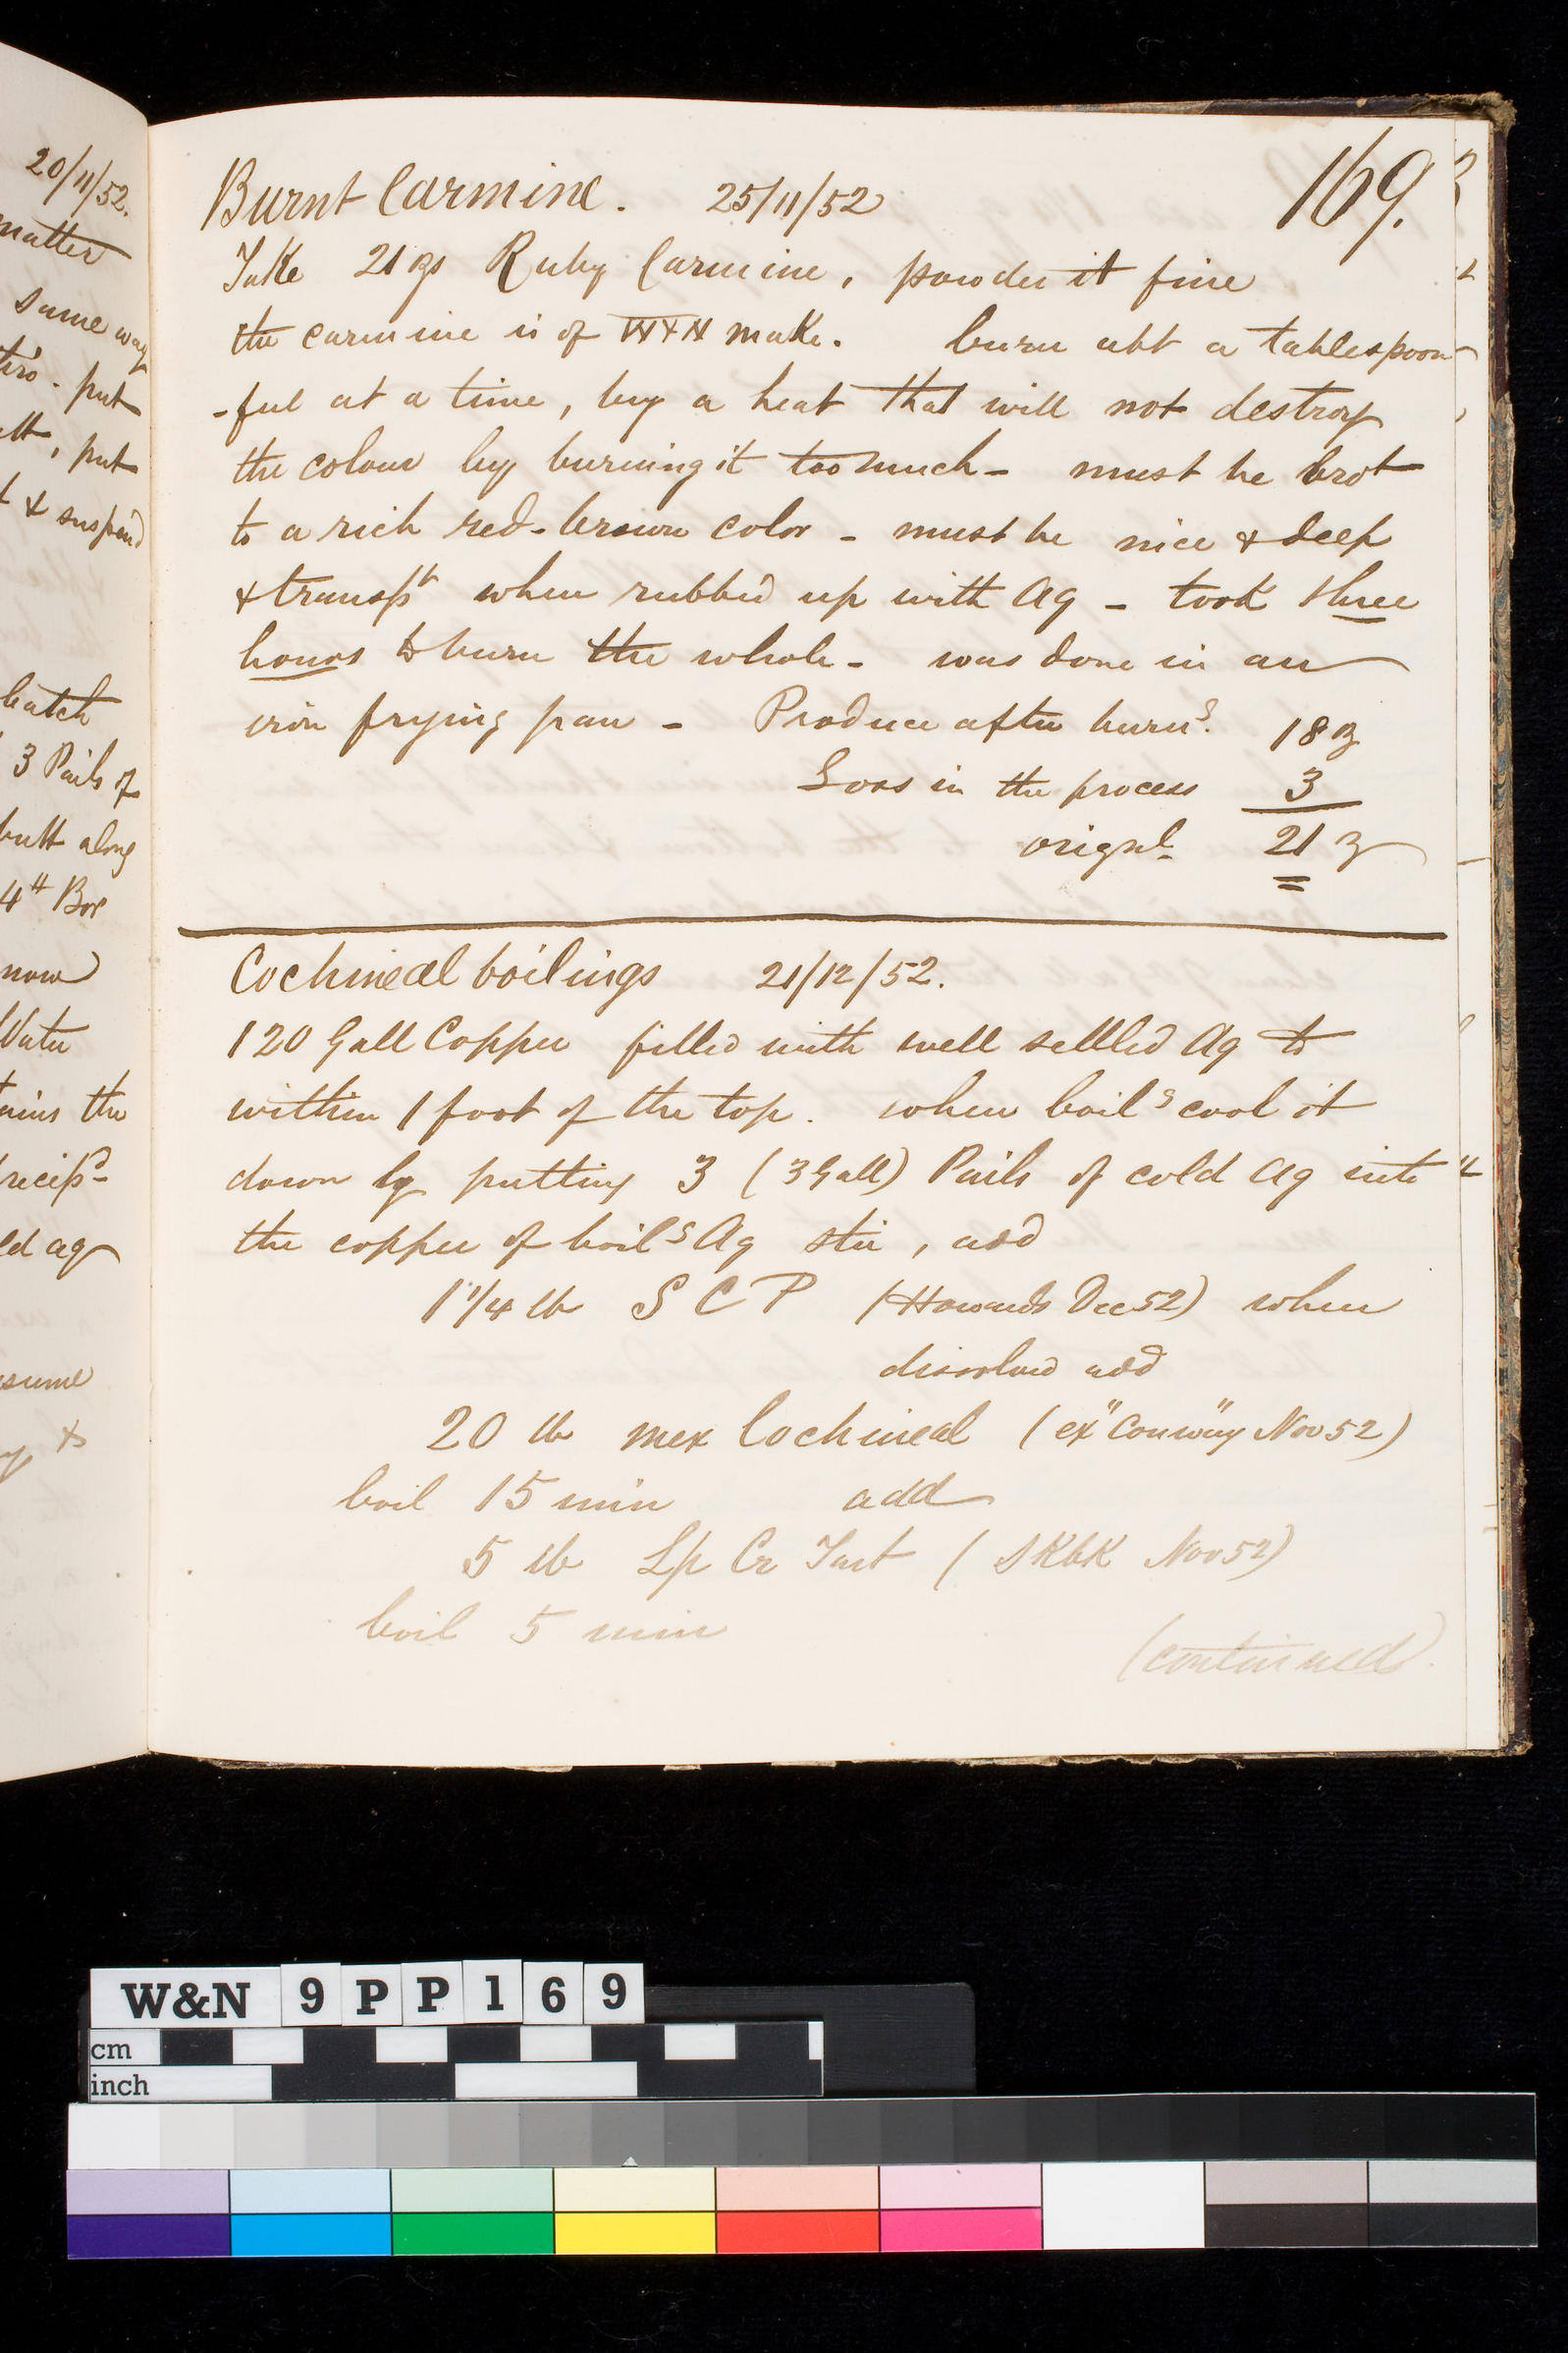 20/11/52.
matter
same way
put
, put
& suspend
batch
3 Pails of
butt along
4th Box
now
Water
the
ld aq
same
&
169.
Burnt Carmine. 25/11/52
Take 21 ozs Ruby Carmine, powder it fine
the carmine is of W&N make. burn abt a tablespoon
-ful at a time, by a heat that will not destroy
the colour by burning it too much - must be brot
to a rich red-brown color - must be nice & deep
& transpt when rubbed up with Aq - took three
hours to burn the whole - was done in an
iron frying pan - Produce after burng. 18 oz
Loss in the process 3
orignl. 21 oz
Cochineal boilings 21/12/52.
120 Gall Copper filled with well settled Aq to
within 1 foot of the top. when boilg cool it
down by putting 3 (3 Gall) Pails of cold Aq into
the copper of boilg Aq stir, add
1 1/4 lb S C P (Howards Dec 52) when
dissolved add
20 lb mex Cochineal (ex "Conway" Nov 52)
boil 15 min add
5 lb Lp Cr Tart ( Nov 52)
boil 5 min
(continued)
W&N 9PP169
cm
inch